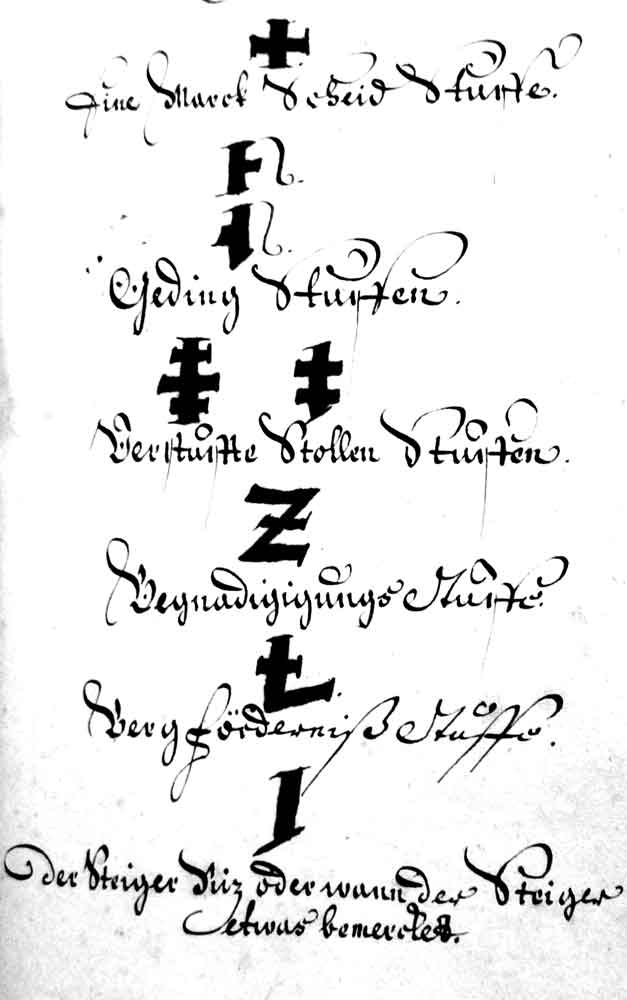 Eine Marck Scheid Stuffe.
Geding Stuffen.
Verstuffte Stollen Stuffen.
Begnadigigungs Stuffe.
Berg förderniß Stuffe.
der Steiger Riz oder wann der Steiger
etwas bemercket.